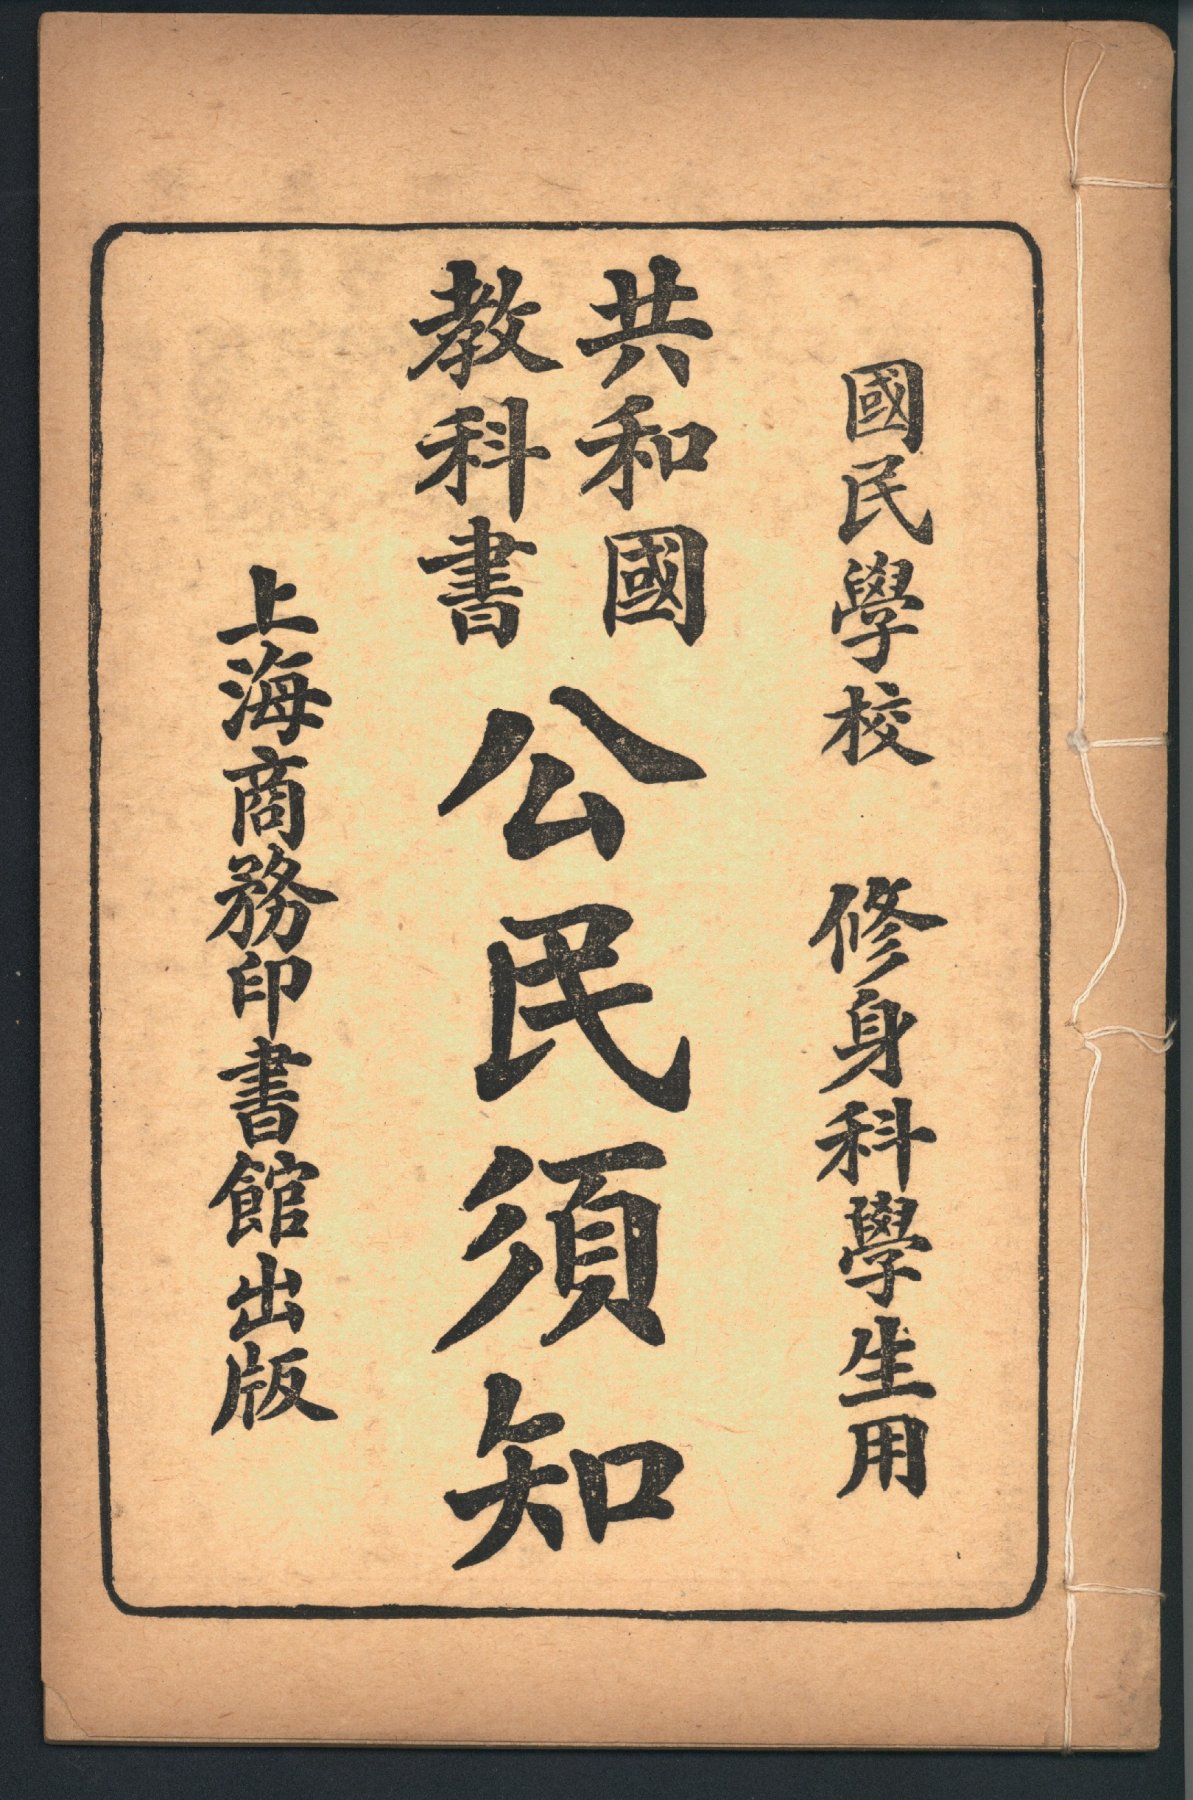 國民學校 修身科學生用
共和國
教科書
公民須知
上海商務印書館出版